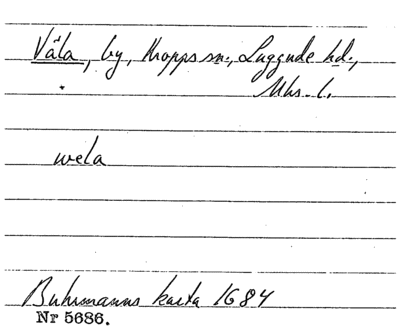 Väla, by, Kropps sn., Luggude hd.,
Mhs. l.
wela
Buhrmanns karta 1684
Nr 5686.